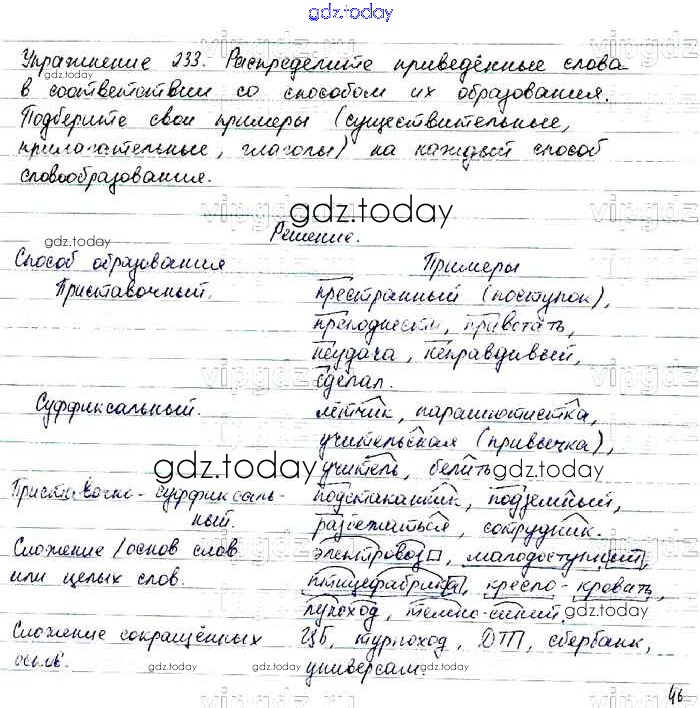 gdz.today
Упражнение 233. Распределите приведённые слова
в соответствии со способом их образования.
Подберите свои примеры (существительные,
прилагательные, глаголы) на каждый способ
словообразования.
gdz.today
gdz.today
Решение.
Способ образования Примеры
Приставочный. престранный (поступок),
преподнести, привстать,
неудача, неправдивый,
сделал.
Суффиксальный. лётчик, парашютистка,
учительская (привычка),
gdz.today учитель, белить
gdz.today
Приставочно-суффиксаль- подстаканник, подземный,
ный. разбежаться, сотрудник.
Сложение/основ слов электровоз, малодоступный,
или целых слов. птицефабрика, кресло-кровать,
луноход, темно-синий.
gdz.today
Сложение сокращённых ЦБ, турпоход, ДТП, сбербанк,
основ. универсам.
gdz.today gdz.today gdz.today
46